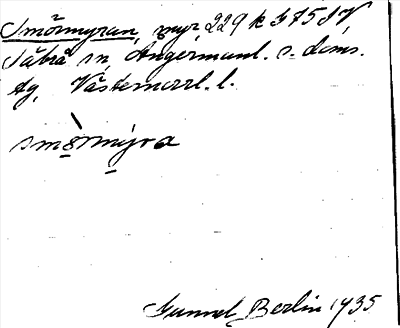 Smörmyran, myr, 229 k G75 SV,
Säbrå sn, Ångermanl. s. doms.
tg, Västernorrl. l.
smörmyra
Gunnel Berlin 1935